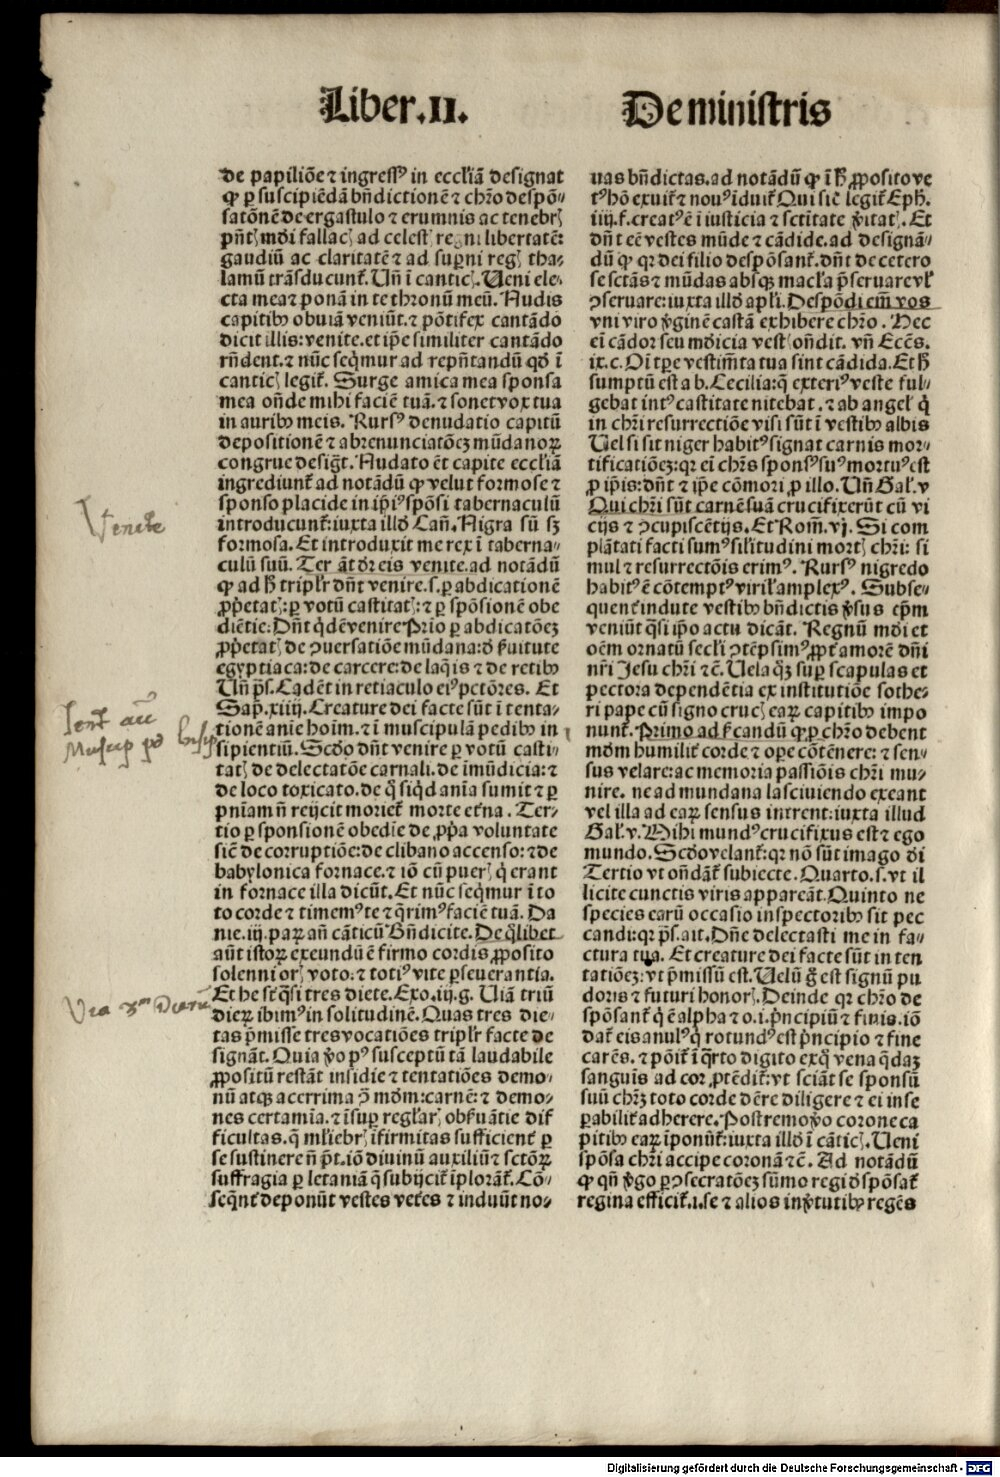 Liber.II.
De ministris
de papiliōe ⁊ ingressꝰ in eccl'iā designat
ꝙ ꝑ suscipiēdā bn̄dictionē ⁊ chr̄o despō-
satōnē de ergastulo ⁊ erumnis ac tenebrꝭ
pn̄tꝭ mūdi fallacꝭ ad celestꝭ regni libertatē:
gaudiū ac claritatē ⁊ ad suꝑni regꝭ tha-
lamū trāsducunt᷑. Un̄ ī canticꝭ. Ueni ele-
cta mea ⁊ ponā in te thronū meū. Nudis
capitibꝰ obuiā veniūt. ⁊ pōtifex cantādo
dicit illis: venite. et ip̄e similiter cantādo
rn̄dent. ⁊ nūc seq̄mur ad repn̄tandū qd̄ ī
canticꝭ legit᷑. Surge amica mea sponsa
mea on̄de mihi faciē tuā. ⁊ sonet vox tua
in auribꝰ meis. Rursꝰ denudatio capitū
depositionē ⁊ abrenunciatōeꝫ mūdanoꝝ
congrue desigt̄. Nudato ēt capite eccl'iā
ingrediunt᷑ ad notādū ꝙ velut formose ⁊
sponso placide in ip̄iꝰ spōsi tabernaculū
introducunt᷑: iuxta illd̄ Can̄. Nigra sū sꝫ
formosa. Et introduxit me rex ī taberna-
culū suū. Ter āt dr̄ eis venite. ad notādū
ꝙ ad h̄ tripl'r dn̄t venire. s. ꝑ abdicationē
ꝓp̄etatꝭ: ꝑ votū castitatꝭ: ⁊ ꝑ spōsionē obe
diētie: Dn̄t q̇dē venire Prīo ꝑ abdicatōeꝫ
ꝓp̄etatꝭ de ꝯuersatiōe mūdana: d̄ ẜuitute
egyptiaca: de carcere: de laq̄is ⁊ de retibꝰ
Un̄ pꝭ. Cadēt in retiaculo eiꝰ pctōres. Et
Sap̄. xiiij. Creature dei facte sūt ī tenta-
tionē anīe hoīm. ⁊ ī muscipulā pedibꝰ in
sipientiū. Scd̄o dn̄t venire ꝑ votū casti-
tatꝭ de delectatōe carnali. de īmūdicia: ⁊
de loco toxicato. de q̄ siq̇d anīa sumit ⁊ ꝑ
pn̄iam n̄ reijcit moriet᷑ morte etn̄a. Ter-
tio ꝑ sponsionē obedīe de ꝓp̄a voluntate
sic̄ de corruptiōe: de clibano accenso: ⁊ de
babylonica fornace. ⁊ iō cū puerꝭ q̇ erant
in fornace illa dicūt. Et nūc seq̄mur ī to
to corde ⁊ timemꝰ te ⁊ q̄rimꝰ faciē tuā. Da
nie. iij. paꝝ an̄ cāticū Bn̄dicite. De q̄libet
aūt istoꝝ exeundū ē firmo cordis ꝓposito
solenni orꝭ voto: ⁊ totiꝰ vite ꝑseuerantia.
Et he st̄ q̄si tres diete. Exo. iij. g. Uiā triū
dieꝝ ibimꝰ in solitudinē. Quas tres die-
tas p̄misse tres vocatiōes tripl'r facte de
signāt. Quia v̄o pꝰ susceptū tā laudabile
ꝓpositū restāt insidie ⁊ tentatiōes demo-
nū atqꝫ acerrima ꝯ̄ mūdm: carnē: ⁊ demo-
nes certamīa. ⁊ īsuꝑ regl'arꝭ obẜuātie dif
ficultas. q̄ ml'iebrꝭ īfirmitas sufficient᷑ ꝑ
se sustinere n̄ pt̄. iō diuinū auxiliū ⁊ sctōꝝ
suffragia ꝑ letaniā q̄ subijcit᷑ īplorāt᷑. Cō-
seq̄nt᷑ deponūt vestes vet̄es ⁊ induūt no-
uas bn̄dictas. ad notādū ꝙ ī h̄ ꝓposito ve
tꝰ hō exuit᷑ ⁊ nouꝰ īduit᷑ Qui sic̄ legit᷑ Eph̄.
iiij. f. creatꝰ ē ī iusticia ⁊ sctītate v̄itatꝭ. Et
dn̄t eē vestes mūde ⁊ cādide. ad designā-
dū ꝙ qꝛ dei filio despōsant᷑. dn̄t de cetero
se sctās ⁊ mūdas absqꝫ macl'a p̄seruare vl'
ꝯseruare: iuxta illd̄ apl'i. Despōdi em̄ vos
vni viro v̄ginē castā exhibere chr̄o. Hec
ei̅ cādor seu mūdicia vestꝭ on̄dit. vn̄ Eccs̄.
ix. c. Oī tꝑe vestim̄ta tua sint cādida. Et h̄
sumptū est a b. Cecilia: q̄ exteriꝰ veste ful-
gebat intꝰ castitate nitebat. ⁊ ab angel' q̇
in chr̄i resurrectiōe visi sūt ī vestibꝰ albis
Uel si sit niger habitꝰ signat carnis mor-
tificatiōeꝫ: qꝛ ei̅ chr̄s sponsꝰ suꝰ mortuꝰ est
ꝓ ip̄is: dn̄t ⁊ ip̄e cōmori ꝓ illo. Un̄ Gal'. v
Qui chr̄i sūt carnē suā crucifixerūt cū vi
cijs ⁊ ꝯcupiscētijs. Et Rom̄. vj. Si com
plātati facti sumꝰ sil'itudini mortꝭ chr̄i: si
mul ⁊ resurrectōis erimꝰ. Rursꝰ nigredo
habitꝰ ē cōtemptꝰ viril' amplexꝰ. Subse-
quent᷑ indute vestibꝰ bn̄dictis v̄sus ep̄m
veniūt q̄si ip̄o actu dicāt. Regnū mūdi et
oēm ornatū secl'i ꝯtēpsimꝰ ꝓpt᷑ amorē dn̄i
nr̄i Jesu chr̄i ⁊c̄. Uela qꝫ suꝑ scapulas et
pectora dependētia ex institutiōe sothe-
ri pape cū signo crucꝭ eaꝝ capitibꝰ impo
nunt᷑. Primo ad ẜcandū ꝙ ꝑ chr̄o debent
mūdm humilit᷑ corde ⁊ oꝑe cōtēnere: ⁊ sen-
sus velare: ac memoria passiōis chr̄i mu-
nire. ne ad mundana lasciuiendo exeant
vel illa ad eaꝝ sensus intrent: iuxta illud
Gal'. v. Mihi mundꝰ crucifixus est ⁊ ego
mundo. Scd̄o velant᷑: qꝛ nō sūt imago di
Tertio vt on̄dāt᷑ subiecte. Quarto. s. vt il
licite cunctis viris appareāt. Quinto ne
species earū occasio inspectoribꝰ sit pec
candi: qꝛ pꝭ. ait. Dn̄e delectasti me in fa-
ctura tua. Et creature dei facte sūt in ten
tatiōeꝫ: vt p̄missū est. Uelū g̊ est signū pu
doris ⁊ futuri honorꝭ. Deinde qꝛ chr̄o de
spōsant᷑ q̇ ē alpha ⁊ o. i. p̄ncipiū ⁊ finis. iō
dat᷑ eis anulꝰ q̇ rotundꝰ est p̄ncipio ⁊ fine
carēs. ⁊ pōit᷑ ī q̄rto digito ex q̄ vena q̄daꝫ
sanguīs ad cor ꝓtēdit᷑: vt sciāt se sponsū
suū chr̄ꝫ toto corde dēre diligere ⁊ ei inse
ꝑabilit᷑ adherere. Postremo v̄o corone ca
pitibꝰ eaꝝ īponūt᷑: iuxta illd̄ ī cāticꝭ. Ueni
spōsa chr̄i accipe coronā ⁊c̄. Ad notādū
ꝙ qn̄ v̄go ꝑ ꝯsecratōeꝫ sūmo regi d̄spōsat᷑
regina efficit᷑. i. se ⁊ alios in v̄tutibꝰ regēs
Venite
Via 3m Dierū
Digitalisierung gefördert durch die Deutsche Forschungsgemeinschaft - DFG